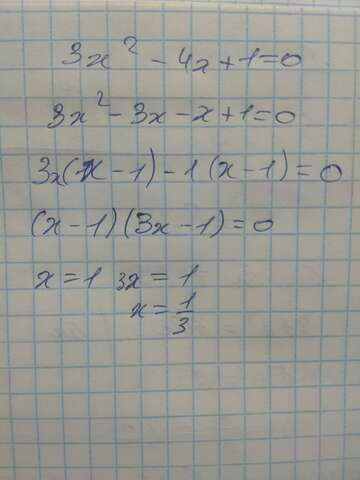 3x² - 4x + 1 = 0
3x² - 3x - x + 1 = 0
3x(x - 1) - 1(x - 1) = 0
(x - 1)(3x - 1) = 0
x = 1 3x = 1
x = 1/3